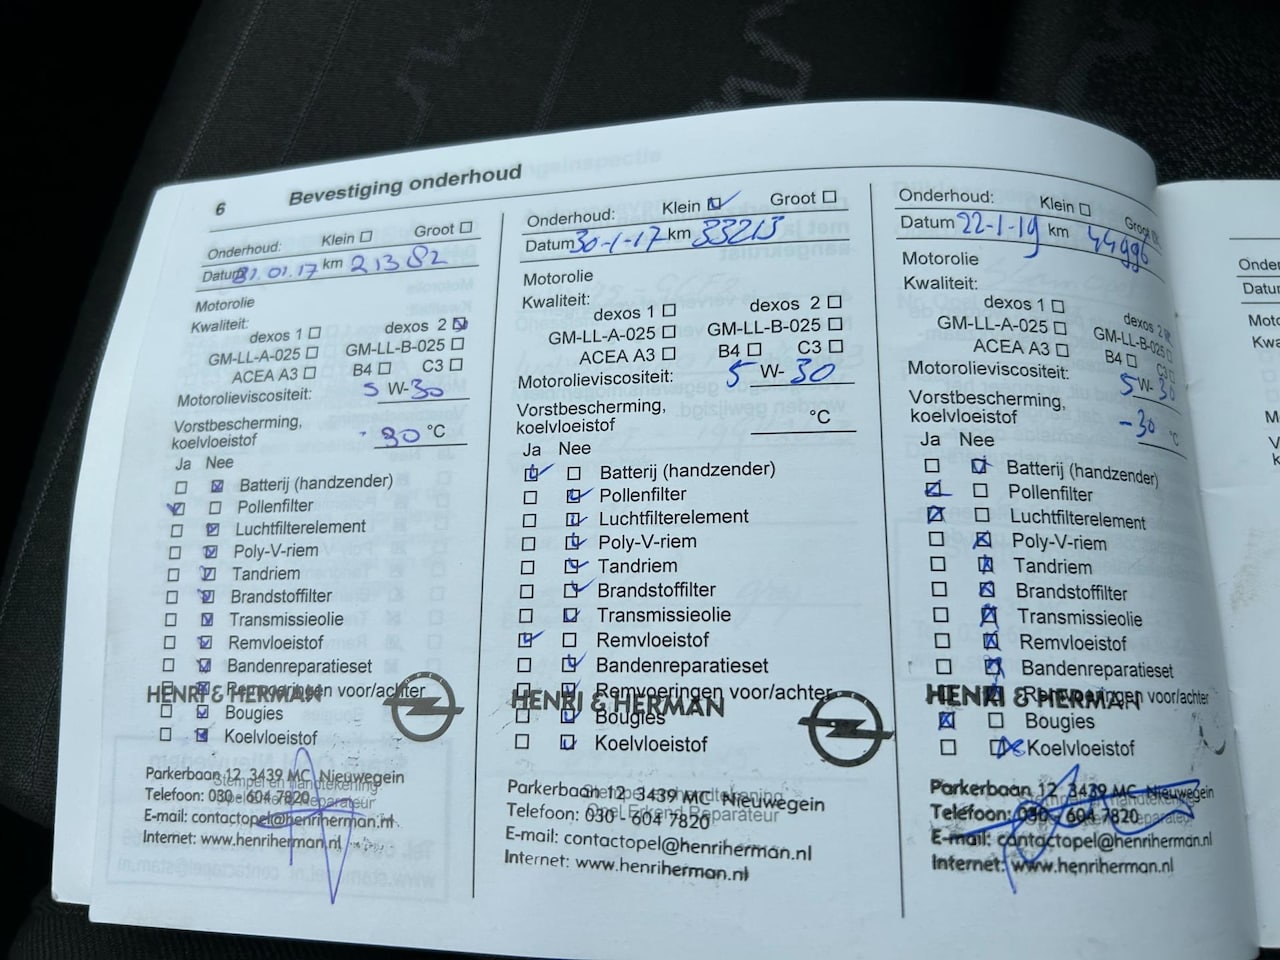 6 Bevestiging onderhoud
Onderhoud: Klein Groot
Datum 31.01.17 km 21382
Motorolie
Kwaliteit:
dexos 1 dexos 2
GM-LL-A-025 GM-LL-B-025
ACEA A3 B4 C3
Motorolieviscositeit: 5 W- 30
Vorstbescherming,
koelvloeistof - 30 °C
Ja Nee
Batterij (handzender)
Pollenfilter
Luchtfilterelement
Poly-V-riem
Tandriem
Brandstoffilter
Transmissieolie
Remvloeistof
Bandenreparatieset
Remvoeringen voor/achter
HENRI & HERMAN
Bougies
Koelvloeistof
Parkerbaan 12 3439 MC Nieuwegein
Stempel en handtekening
Telefoon: 030 - 604 7820
Opel Erkend Reparateur
E-mail: contactopel@henriherman.nl
Internet: www.henriherman.nl
Onderhoud: Klein Groot
Datum 30-1-17 km 33213
Motorolie
Kwaliteit:
dexos 1 dexos 2
GM-LL-A-025 GM-LL-B-025
ACEA A3 B4 C3
Motorolieviscositeit: 5 W- 30
Vorstbescherming,
koelvloeistof °C
Ja Nee
Batterij (handzender)
Pollenfilter
Luchtfilterelement
Poly-V-riem
Tandriem
Brandstoffilter
Transmissieolie
Remvloeistof
Bandenreparatieset
Remvoeringen voor/achter
HENRI & HERMAN
Bougies
Koelvloeistof
Parkerbaan 12 3439 MC Nieuwegein
Stempel en handtekening
Telefoon: 030 - 604 7820
Opel Erkend Reparateur
E-mail: contactopel@henriherman.nl
Internet: www.henriherman.nl
Onderhoud: Klein Groot
Datum 22-1-19 km 44996
Motorolie
Kwaliteit:
dexos 1 dexos 2
GM-LL-A-025 GM-LL-B-025
ACEA A3 B4 C3
Motorolieviscositeit: 5 W- 30
Vorstbescherming,
koelvloeistof -30 °C
Ja Nee
Batterij (handzender)
Pollenfilter
Luchtfilterelement
Poly-V-riem
Tandriem
Brandstoffilter
Transmissieolie
Remvloeistof
Bandenreparatieset
Remvoeringen voor/achter
HENRI & HERMAN
Bougies
Koelvloeistof
Parkerbaan 12 3439 MC Nieuwegein
handtekening
Telefoon: 030 - 604 7820
Reparateur
E-mail: contactopel@henriherman.nl
Internet: www.henriherman.nl